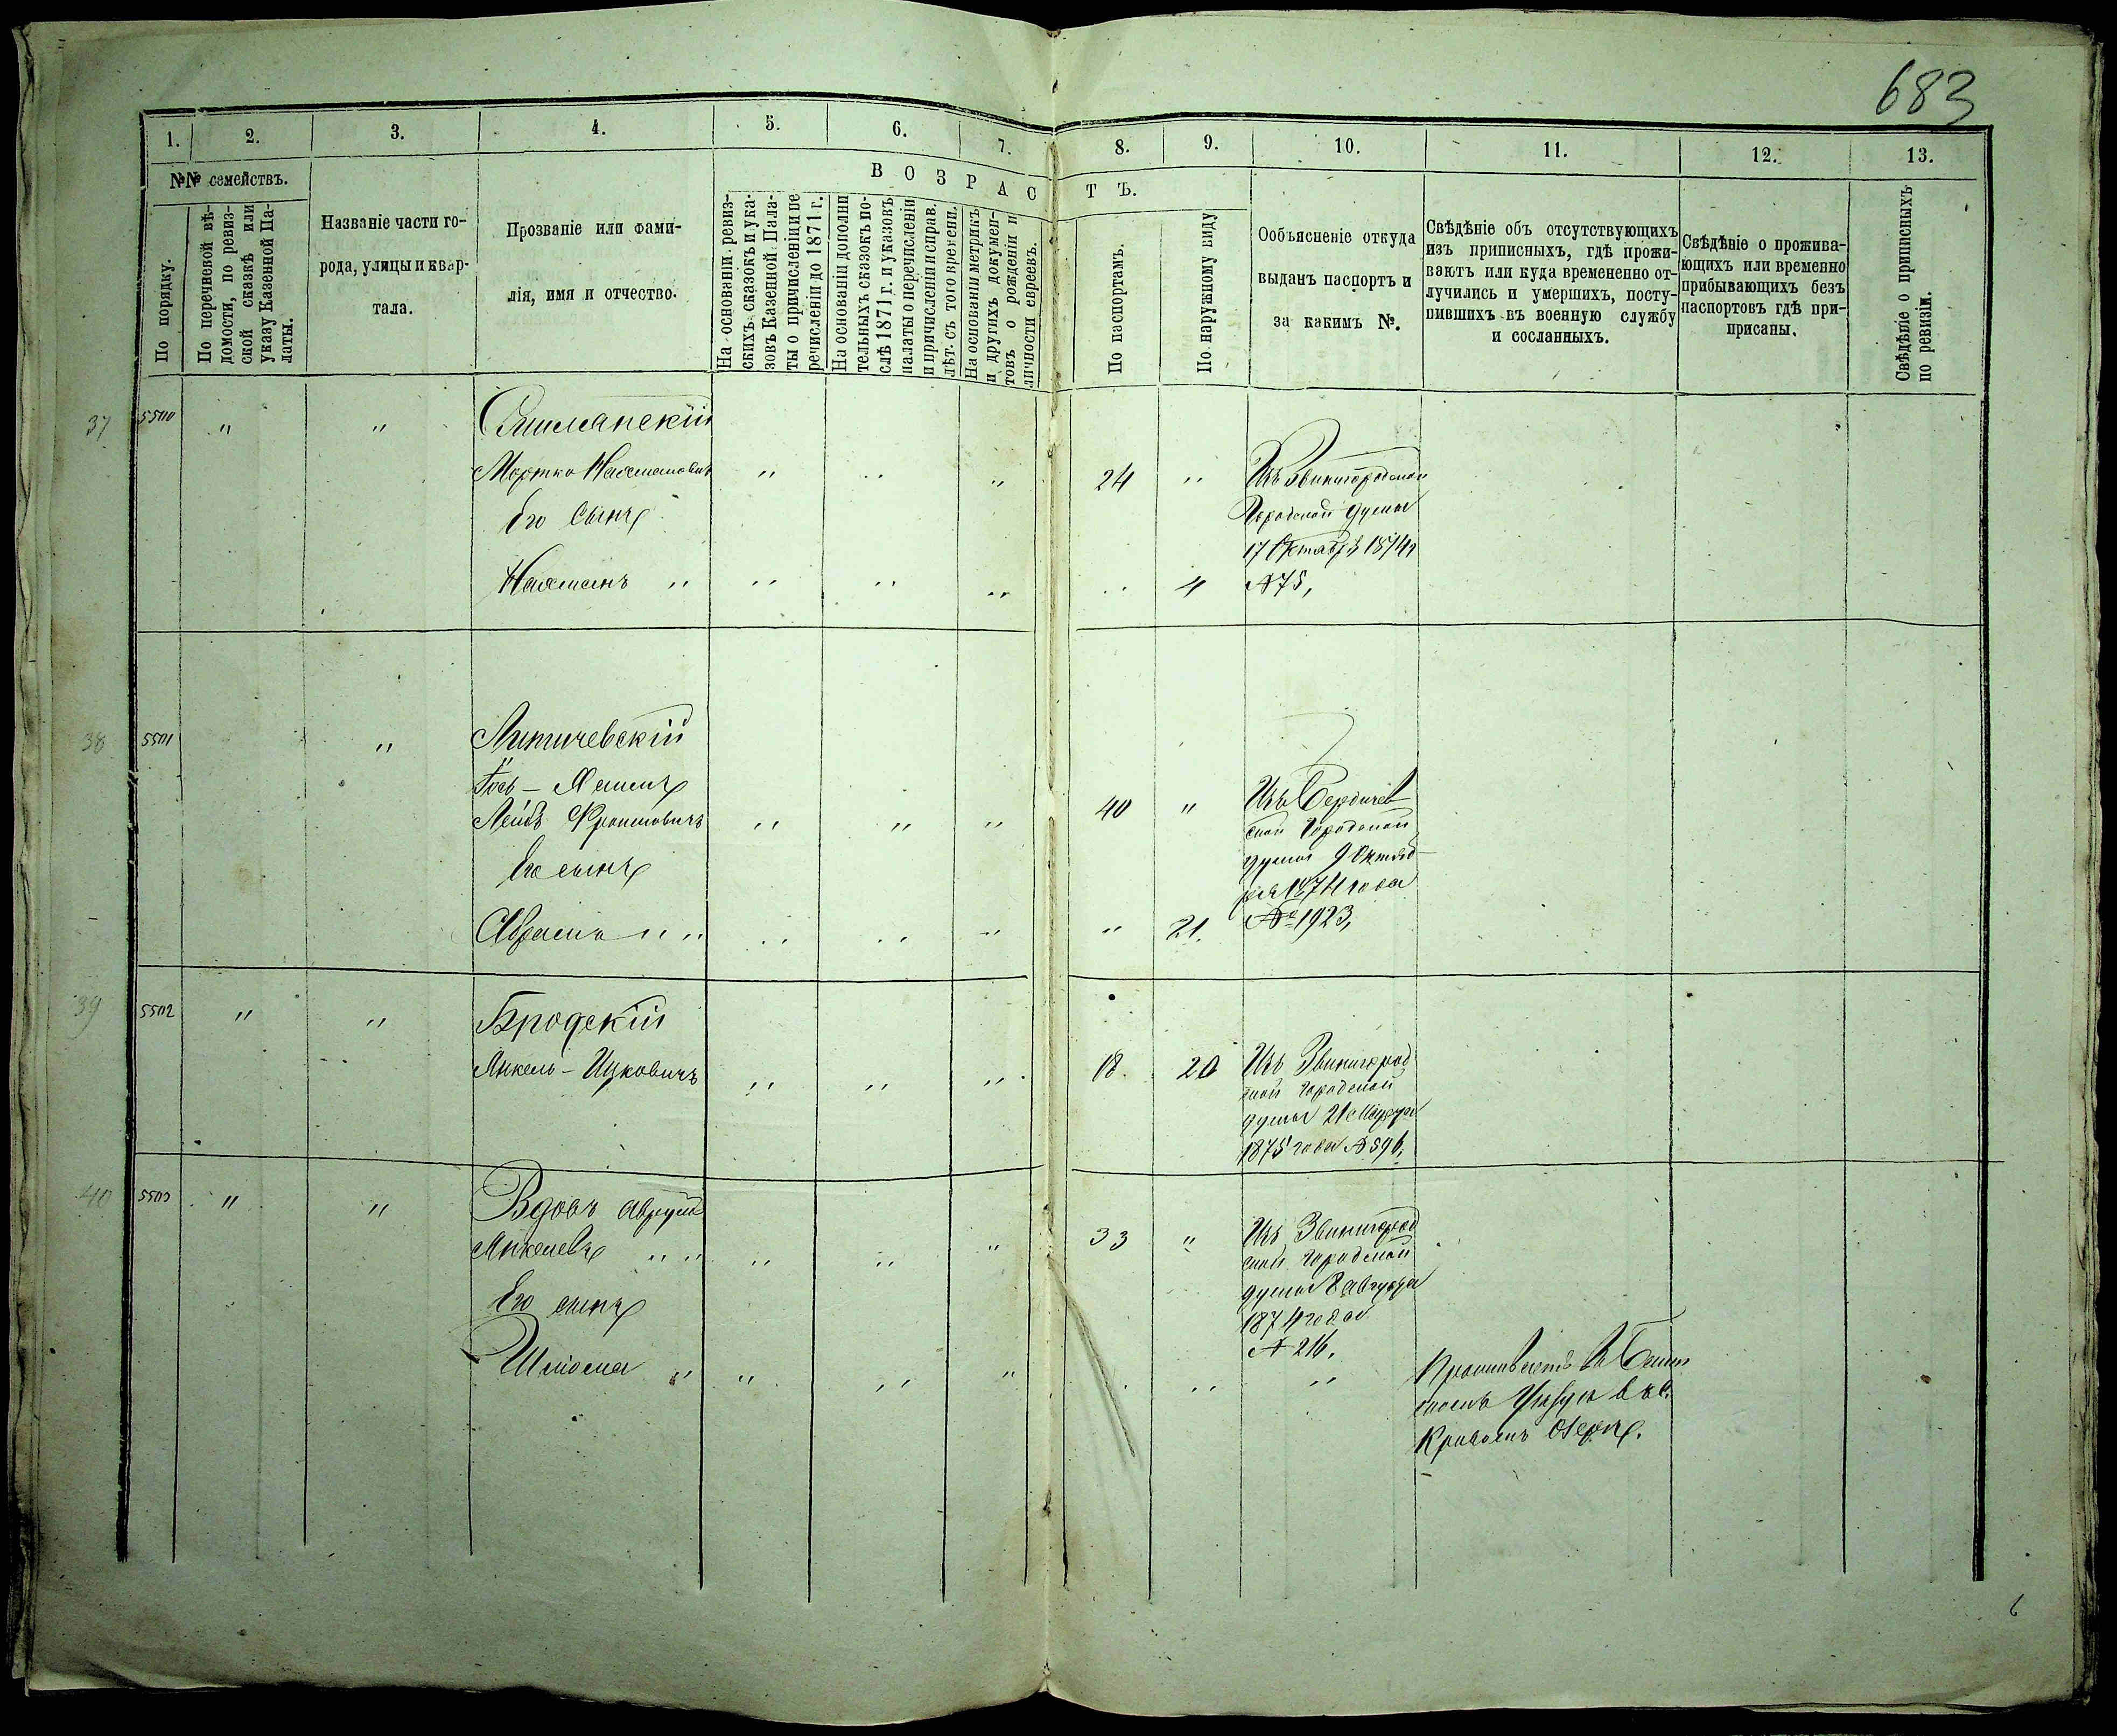 683
1. 2. 3. 4. 5. 6. 7. 8. 9. 10. 11. 12. 13.
№№ семействъ.
В О З Р А С Т Ъ.
По порядку.
По перечневой вѣ-
домости, по ревиз-
ской сказкѣ или
указу Казенной Па-
латы.
Названіе части го-
рода, улицы и квар-
тала.
Прозваніе или фами-
лія, имя и отчество.
На основаніи ревиз-
скихъ сказокъ и ука-
зовъ Казенной Пала-
ты о причисленіи и пе
речисленіи до 1871 г.
На основаніи дополни
тельныхъ сказокъ по-
слѣ 1871 г. и указовъ
палаты о перечисленіи
и причисленіи и справ.
лѣт. съ того времени.
На основаніи метрикъ
и другихъ докумен-
товъ о рожденіи и
личности евреевъ.
По паспортамъ.
По наружному виду
Ообъясненіе откуда
выданъ паспортъ и
за какимъ №.
Свѣдѣніе объ отсутствующихъ
изъ приписныхъ, гдѣ прожи-
ваютъ или куда времененно от-
лучились и умершихъ, посту-
пившихъ въ военную службу
и сосланныхъ.
Свѣдѣніе о прожива-
ющихъ или временно
прибывающихъ безъ
паспортовъ гдѣ при-
присаны.
Свѣдѣніе о приписныхъ
по ревизіи.
37 5500 " "
Мортко Нахмановичъ " " " 24 " Изъ Звинигородской
Его Сынъ Городской думы
17 Октября 1874
Нахманъ " " " " " 4 №75,
38 5501 "
Литичевскій
Лейбъ " " " 40 " Изъ Бердичев
ской Городской
Его сынъ думы 9 Октяб-
ря 1874 года
Абрамъ " " " " " " 21. № 1923,
39 5502 " "
Бродскій
Янкель - Ицковичъ " " " 18. 20 Изъ Звинигород
ской Городской
думы 21 Марта
1875 года № 596,
40 5503 " "
Вдовъ Аврумъ
Янкелевъ " " " " " 33 " Изъ Звинигород
ской Городской
Его сынъ думы 8 августа
1874 года
№ 216.
Шлиома " " " " " " Проживаетъ в
уѣзда в
Кривомъ Озерѣ.
6